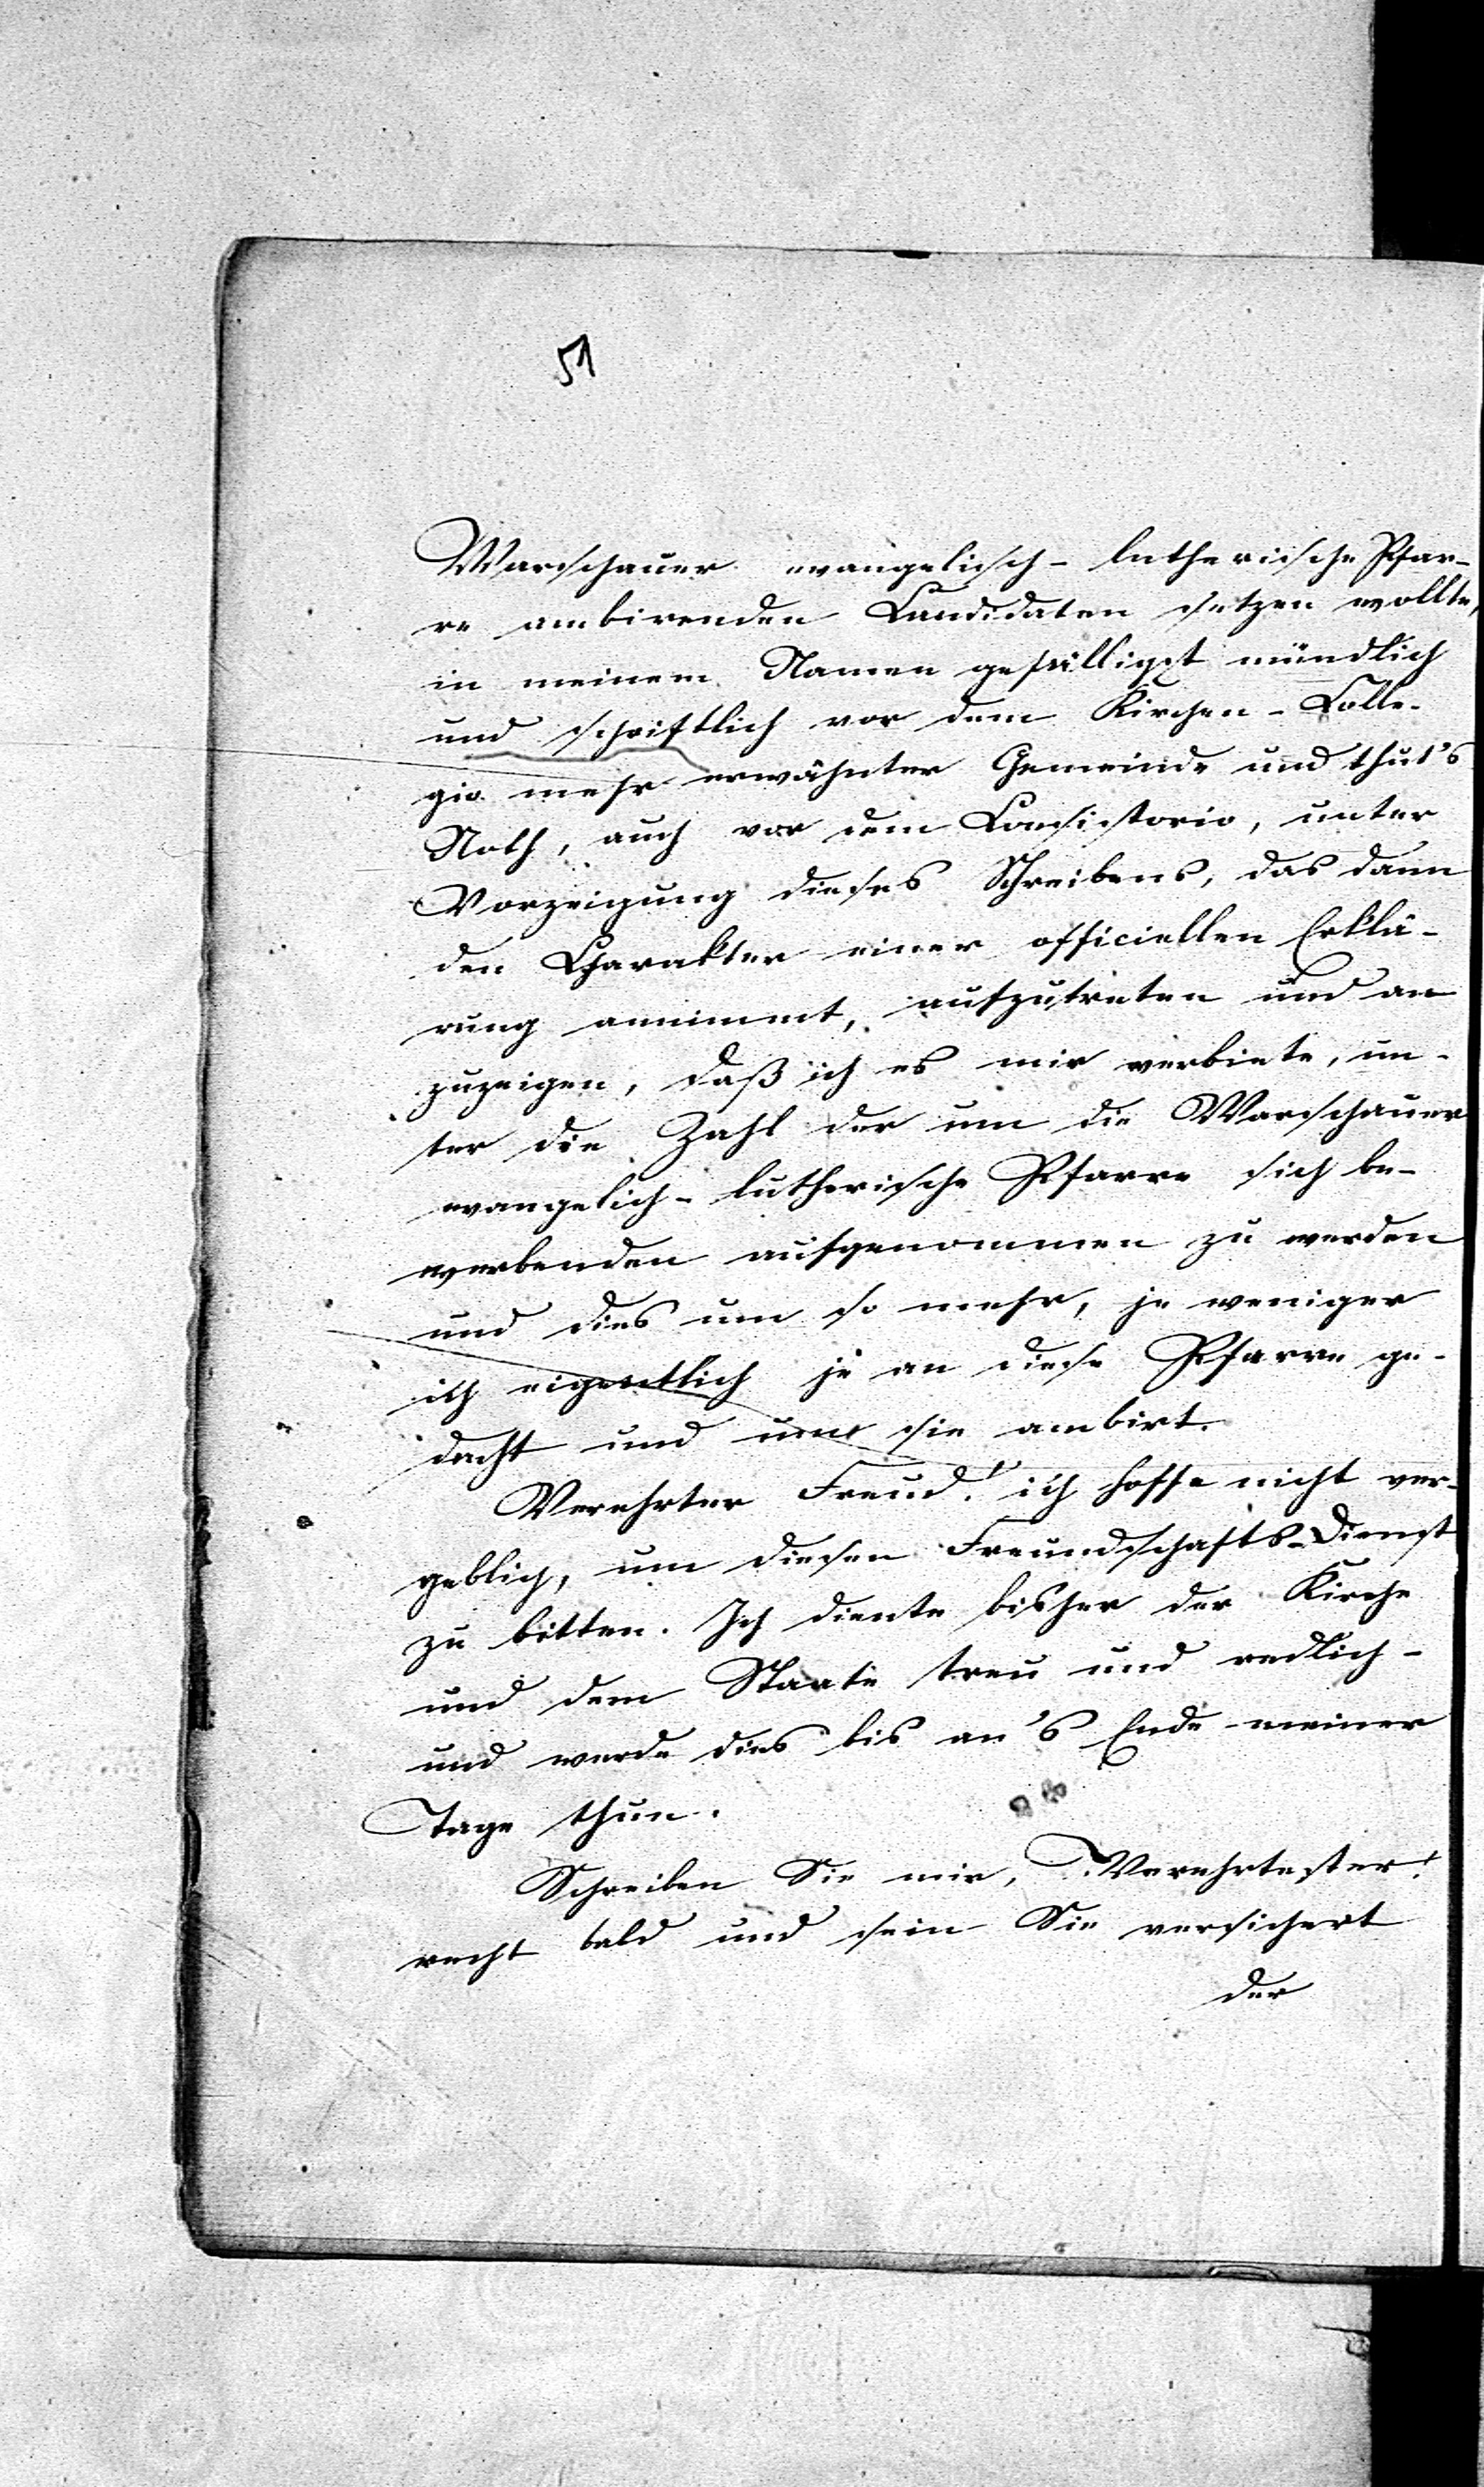 51
Warschauer evangelisch-lutherische Pfar-
re ambirenden Candidaten setzen wollte,
in meinem Namen gefälligst mündlich
und schriftlich vor dem Kirchen-Colle-
gio mehr erwähnter Gemeinde und thut's
Noth, auch vor dem Consistorio, unter
Vorzeigung dieses Schreibens, das dann
den Charakter einer officiellen Erklä-
rung annimmt, aufzutreten und an
zuzeigen, daß ich es mir verbiete, un-
ter die Zahl der um die Warschauer
evangelich-lutherische Pfarre sich be-
werbenden aufgenommen zu werden
und dies um so mehr, je weniger
ich eigentlich je an diese Pfarre ge-
dacht und um sie ambirt.
Verehrter Freund! ich hoffe nicht ver-
geblich, um diesen Freundschafts-Dienst
zu bitten. Ich diente bisher der Kirche
und dem Staate treu und redlich-
und werde dies bis an's Ende meiner
Tage thun.
Schreiben Sie mir, Verehrtester!
recht bald und sein Sie versichert
der